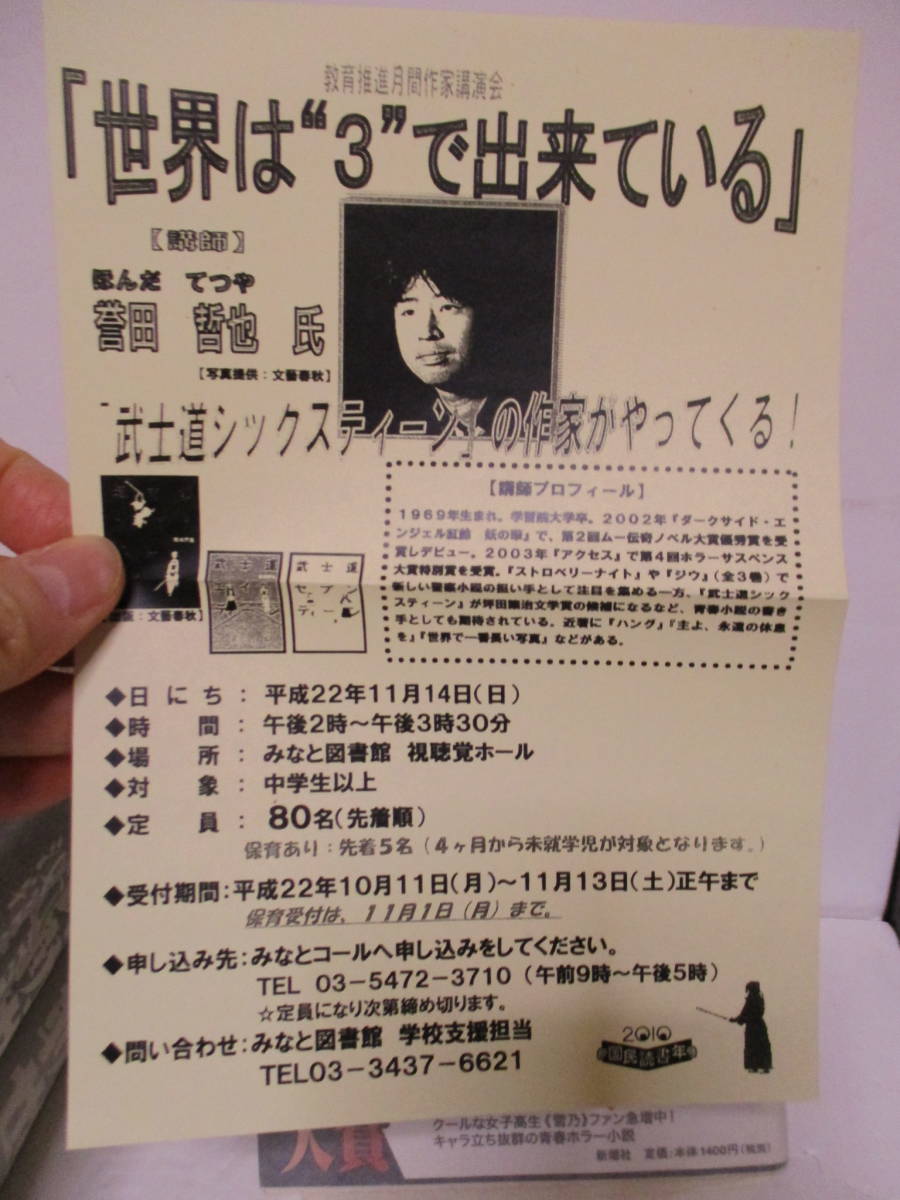 教育推進月間作家講演会
「世界は“3”で出来ている」
【講師】
ほんだ てつや
誉田 哲也 氏
【写真提供：文藝春秋】
「武士道シックスティーン」の作家がやってくる！
【講師プロフィール】
1969年生まれ。学習院大学卒。2002年『ダークサイド・エ
ンジェル紅鈴 妖の華』で、第2回ムー伝奇ノベル大賞優秀賞を受
賞しデビュー。2003年『アクセス』で第4回ホラーサスペンス
大賞特別賞を受賞。『ストロベリーナイト』や『ジウ』（全3巻）で
新しい警察小説の担い手として注目を集める一方、『武士道シック
スティーン』が坪田譲治文学賞の候補になるなど、青春小説の書き
手としても期待されている。近著に『ハング』『主よ、永遠の休息
を』『世界で一番長い写真』などがある。
武士道
武士道
セブン
ティーン
版：文藝春秋】
◆日にち：平成22年11月14日（日）
◆時　間：午後2時～午後3時30分
◆場　所：みなと図書館 視聴覚ホール
◆対　象：中学生以上
◆定　員：80名（先着順）
保育あり：先着5名（4ヶ月から未就学児が対象となります。）
◆受付期間：平成22年10月11日（月）～11月13日（土）正午まで
保育受付は、11月1日（月）まで。
◆申し込み先：みなとコールへ申し込みをしてください。
TEL 03－5472－3710（午前9時～午後5時）
☆定員になり次第締め切ります。
◆問い合わせ：みなと図書館 学校支援担当
TEL03－3437－6621
2010
国民読書年
大賞
クールな女子高生《雪乃》ファン急増中！
キャラ立ち抜群の青春ホラー小説
新潮社 定価：本体1400円（税別）